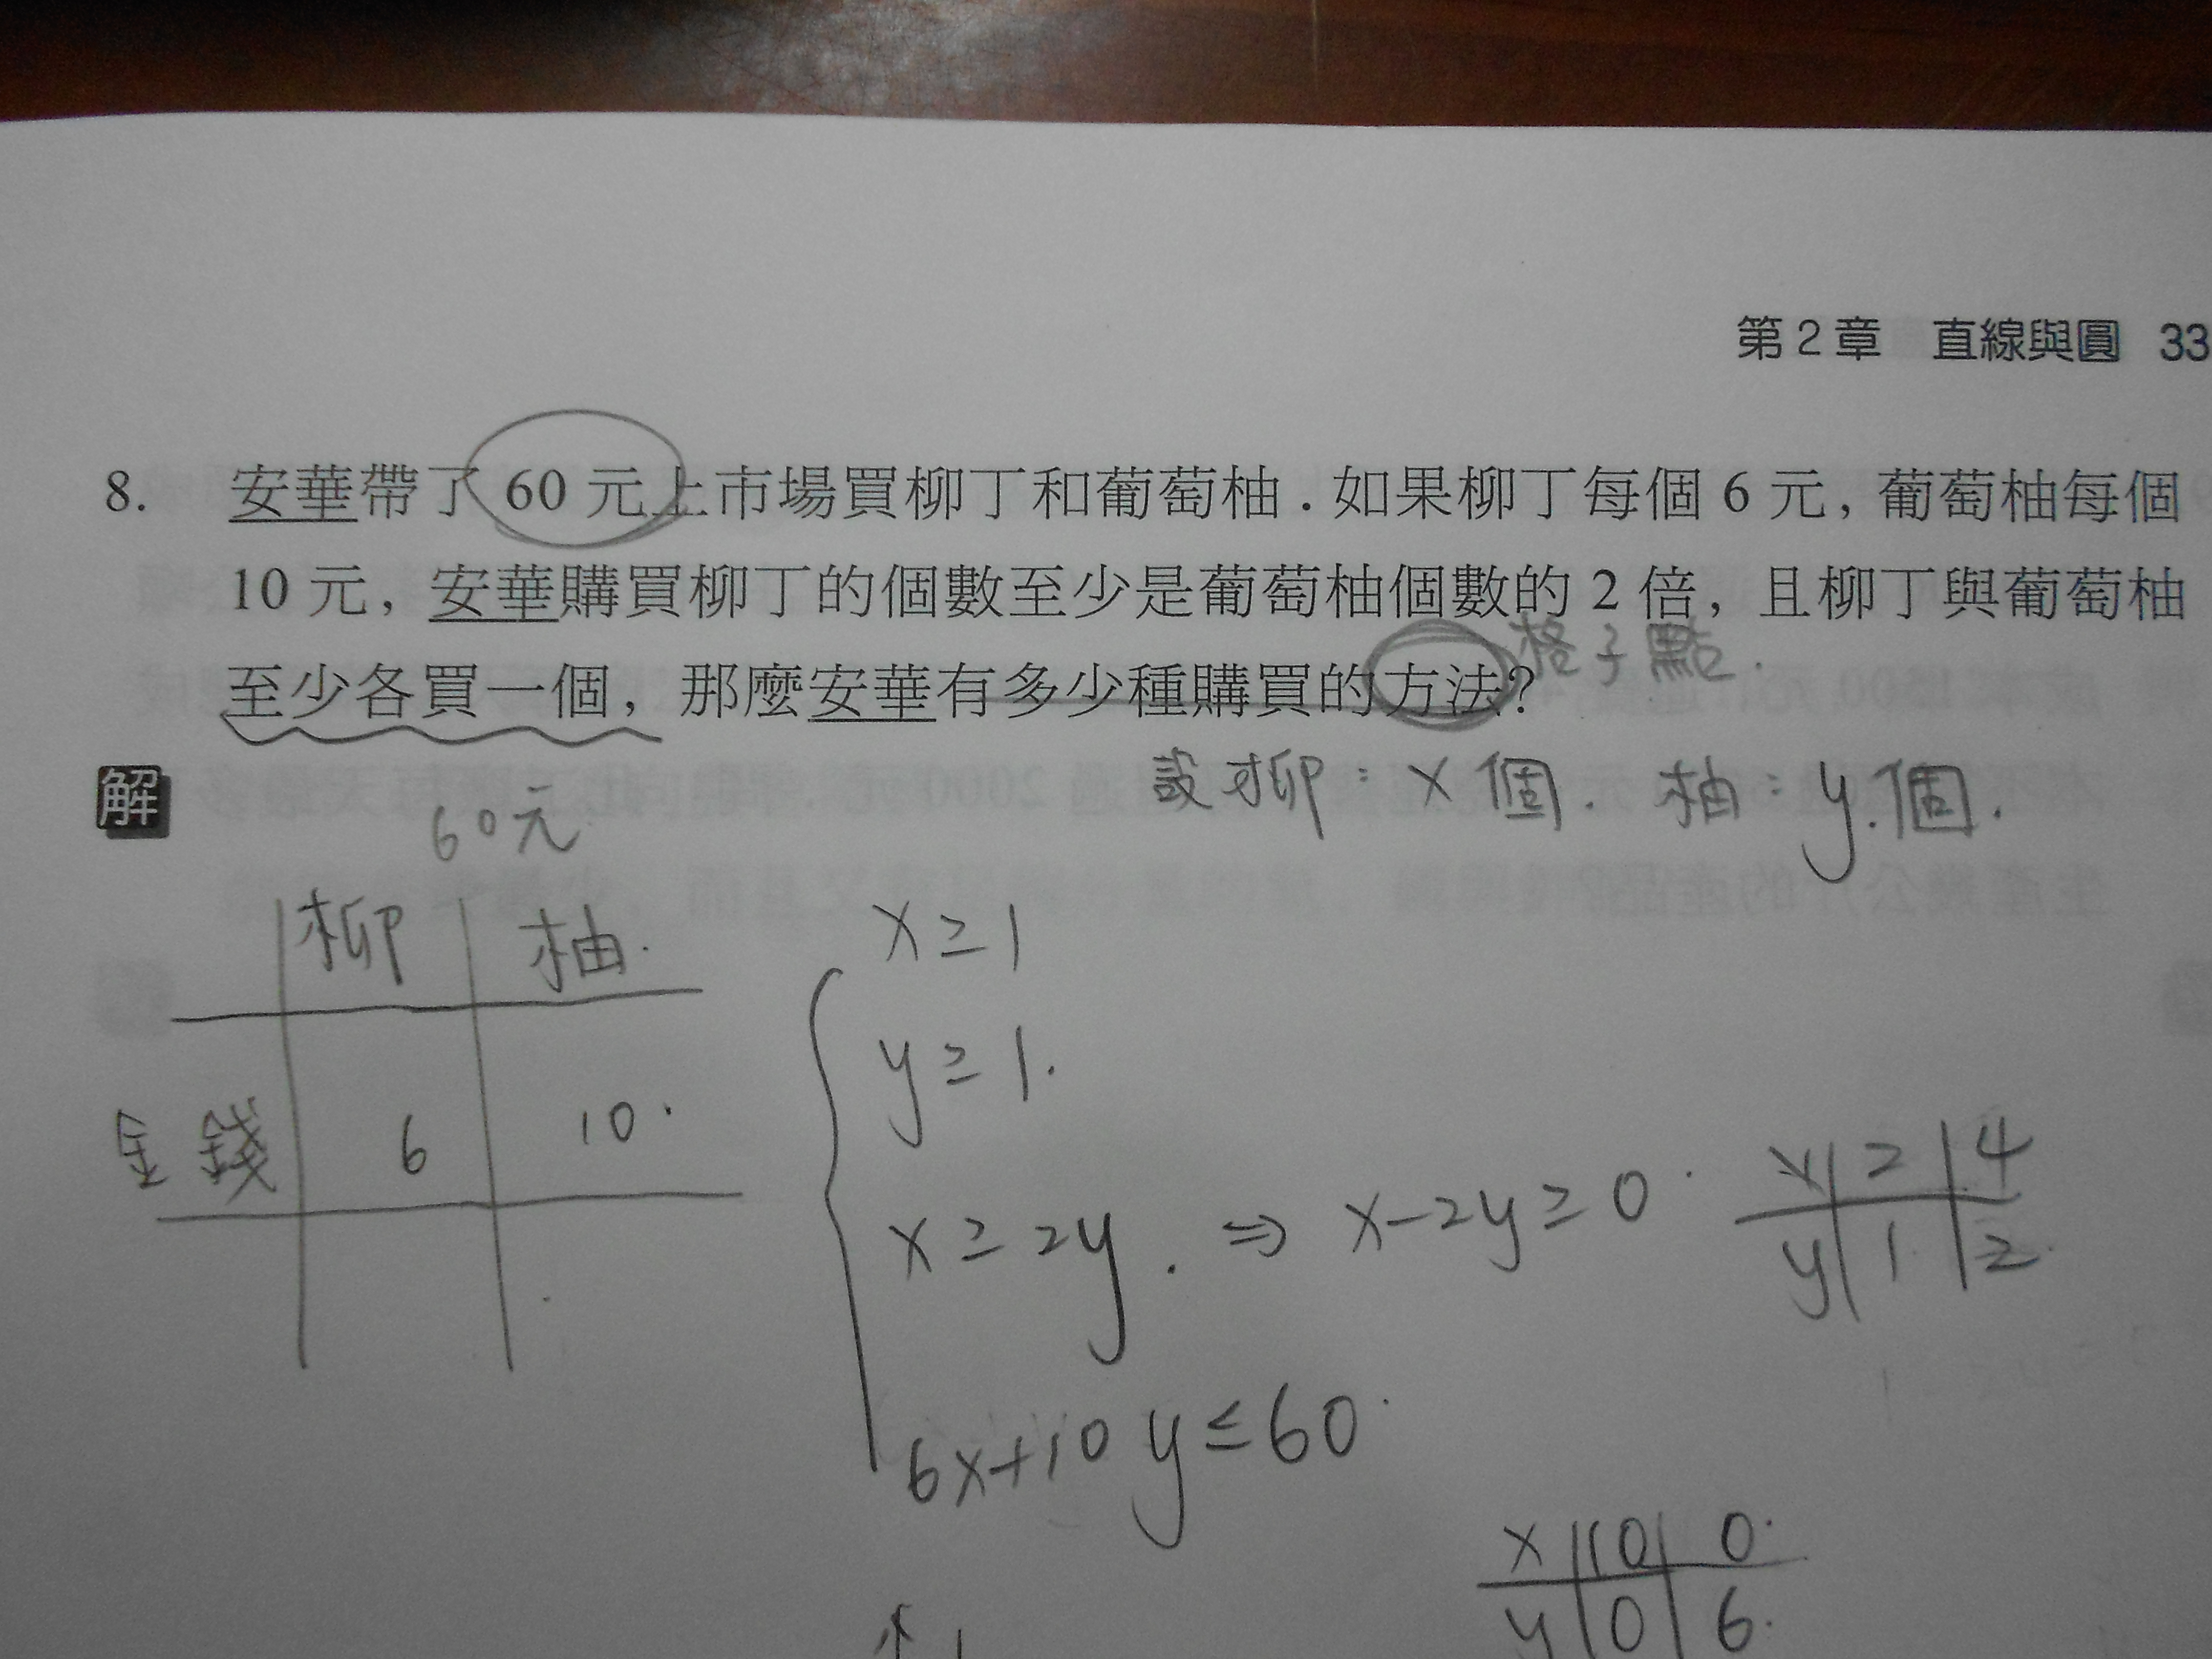 第2章 直線與圓 33
8. 安華帶了 60 元上市場買柳丁和葡萄柚．如果柳丁每個 6 元，葡萄柚每個
10 元，安華購買柳丁的個數至少是葡萄柚個數的 2 倍，且柳丁與葡萄柚
格子點．
至少各買一個，那麼安華有多少種購買的方法？
解
設柳：x 個．柚：y 個．
60元
柳 柚
金錢 6 10
x ≥ 1
y ≥ 1.
x ≥ 2y . ⇒ x-2y ≥ 0
x 2 4
y 1 2
6x+10y ≤ 60
x 10 0
y 0 6